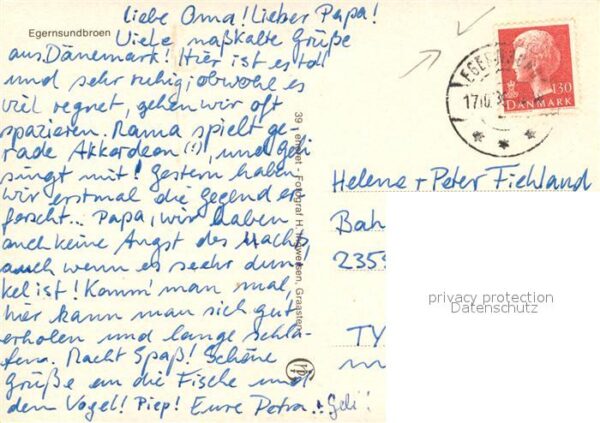 Egernsundbroen
Liebe Oma! Lieber Papa!
Viele naßkalte Grüße
aus Dänemark! Hier ist es toll
und sehr ruhig, obwohl es
viel regnet, gehen wir oft
spazieren. Mama spielt ge-
rade Akkordeon (!), und Geli
singt mit! Gestern haben
wir erstmal die Gegend er-
forscht... Papa, wir haben
auch keine Angst des Nachts,
auch wenn es seehr dun-
kel ist! Komm' man mal,
hier kann man sich gut
erholen und lange schla-
fen. Macht Spaß! Schöne
Grüße an die Fische und
den Vogel! Piep! Eure Petra + Geli!
39 Fotograf H. Graasten
130
DANMARK
Helene + Peter Fiehland
Bah
2359
TY
privacy protection
Datenschutz